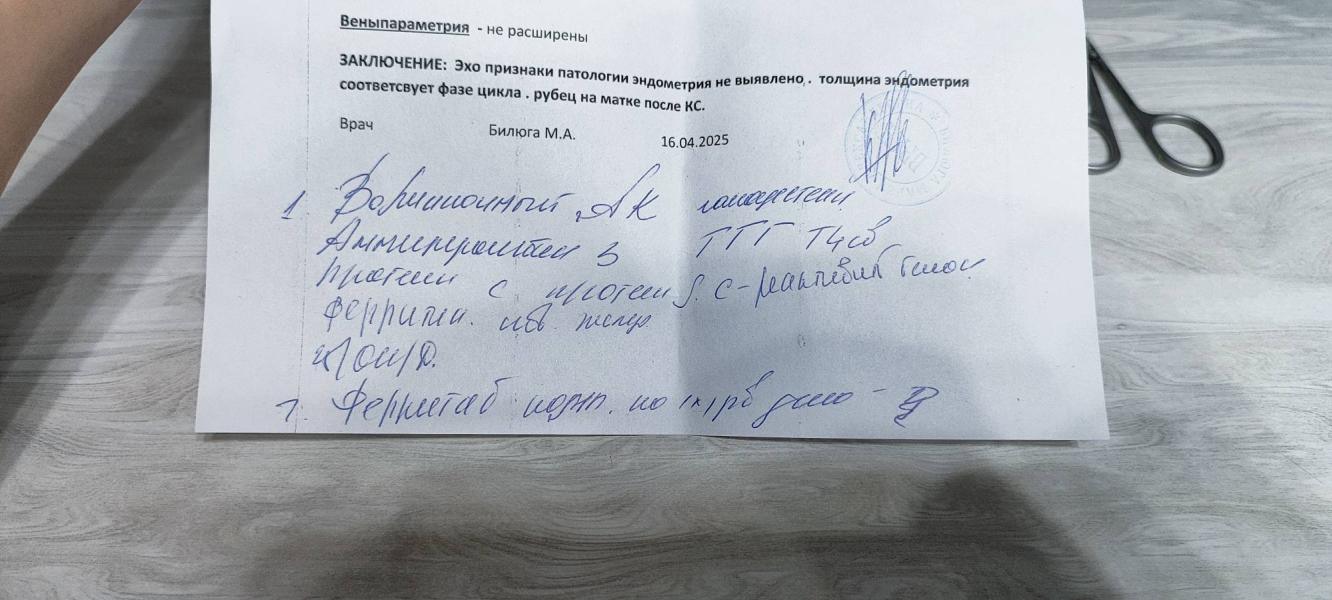 Веныпараметрия - не расширены
ЗАКЛЮЧЕНИЕ: Эхо признаки патологии эндометрия не выявлено . толщина эндометрия
соответсвует фазе цикла . рубец на матке после КС.
Врач Билюга М.А. 16.04.2025
1. Волчаночный АК гомоцистеин
Антитромбин 3 ТТГ Т4св
Протеин С протеин S. С-реактивный белок
Ферритин.
2. Ферритаб по 1 х 1 р